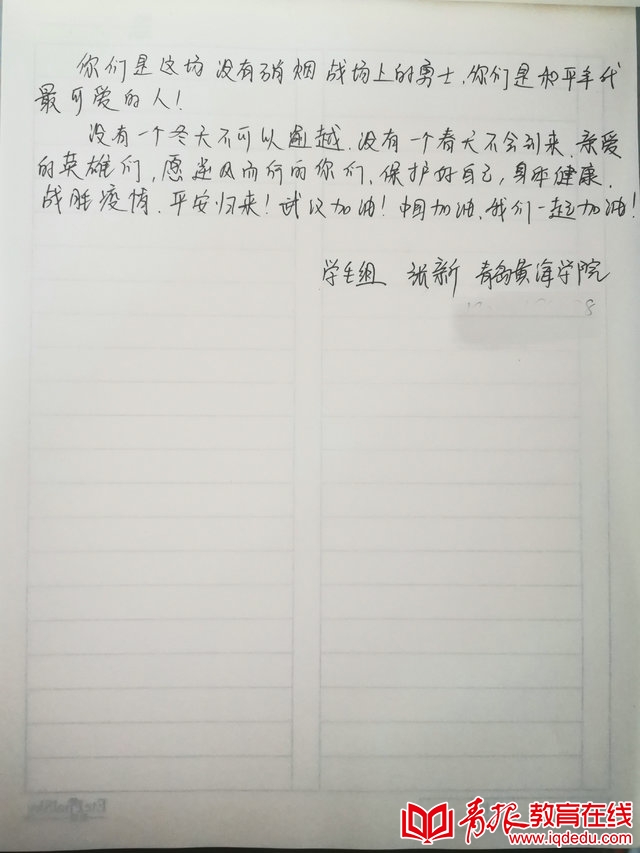 你们是这场没有硝烟战场上的勇士,你们是和平年代
最可爱的人!
没有一个冬天不可以逾越.没有一个春天不会到来.亲爱
的英雄们,愿逆风而行的你们、保护好自己,身体健康.
战胜疫情.平安归来!武汉加油!中国加油、我们一起加油!
学生组 张新 青岛黄海学院
青报教育在线
www.iqdedu.com